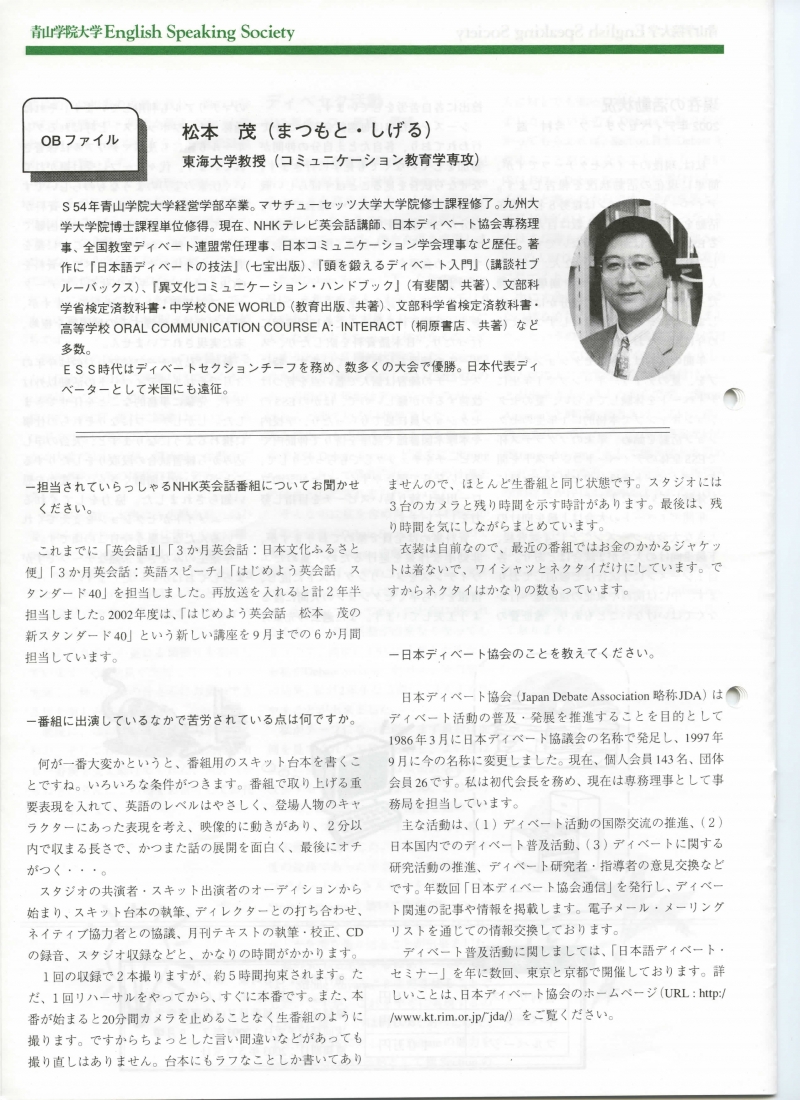 青山学院大学 English Speaking Society
OBファイル
松本　茂（まつもと・しげる）
東海大学教授（コミュニケーション教育学専攻）
Ｓ54年青山学院大学経営学部卒業。マサチューセッツ大学大学院修士課程修了。九州大
学大学院博士課程単位修得。現在、NHKテレビ英会話講師、日本ディベート協会専務理
事、全国教室ディベート連盟常任理事、日本コミュニケーション学会理事など歴任。著
作に『日本語ディベートの技法』（七宝出版）、『頭を鍛えるディベート入門』（講談社ブ
ルーバックス）、『異文化コミュニケーション・ハンドブック』（有斐閣、共著）、文部科
学省検定済教科書・中学校ONE WORLD（教育出版、共著）、文部科学省検定済教科書・
高等学校 ORAL COMMUNICATION COURSE A: INTERACT（桐原書店、共著）など
多数。
ＥＳＳ時代はディベートセクションチーフを務め、数多くの大会で優勝。日本代表ディ
ベーターとして米国にも遠征。
ー担当されていらっしゃるNHK英会話番組についてお聞かせ
ください。
これまでに「英会話Ⅰ」「３か月英会話：日本文化ふるさと
便」「３か月英会話：英語スピーチ」「はじめよう英会話　ス
タンダード40」を担当しました。再放送を入れると計２年半
担当しました。2002年度は、「はじめよう英会話　松本　茂の
新スタンダード40」という新しい講座を９月までの６か月間
担当しています。
ー番組に出演しているなかで苦労されている点は何ですか。
何が一番大変かというと、番組用のスキット台本を書くこ
とですね。いろいろな条件がつきます。番組で取り上げる重
要表現を入れて、英語のレベルはやさしく、登場人物のキャ
ラクターにあった表現を考え、映像的に動きがあり、２分以
内で収まる長さで、かつまた話の展開を面白く、最後にオチ
がつく・・・。
スタジオの共演者・スキット出演者のオーディションから
始まり、スキット台本の執筆、ディレクターとの打ち合わせ、
ネイティブ協力者との協議、月刊テキストの執筆・校正、CD
の録音、スタジオ収録などと、かなりの時間がかかります。
１回の収録で２本撮りますが、約５時間拘束されます。た
だ、１回リハーサルをやってから、すぐに本番です。また、本
番が始まると20分間カメラを止めることなく生番組のように
撮ります。ですからちょっとした言い間違いなどがあっても
撮り直しはありません。台本にもラフなことしか書いてあり
ませんので、ほとんど生番組と同じ状態です。スタジオには
３台のカメラと残り時間を示す時計があります。最後は、残
り時間を気にしながらまとめています。
衣装は自前なので、最近の番組ではお金のかかるジャケッ
トは着ないで、ワイシャツとネクタイだけにしています。で
すからネクタイはかなりの数もっています。
ー日本ディベート協会のことを教えてください。
日本ディベート協会（Japan Debate Association 略称JDA）は
ディベート活動の普及・発展を推進することを目的として
1986年３月に日本ディベート協議会の名称で発足し、1997年
９月に今の名称に変更しました。現在、個人会員143名、団体
会員26です。私は初代会長を務め、現在は専務理事として事
務局を担当しています。
主な活動は、（１）ディベート活動の国際交流の推進、（２）
日本国内でのディベート普及活動、（３）ディベートに関する
研究活動の推進、ディベート研究者・指導者の意見交換など
です。年数回「日本ディベート協会通信」を発行し、ディベー
ト関連の記事や情報を掲載します。電子メール・メーリング
リストを通じての情報交換しております。
ディベート普及活動に関しましては、「日本語ディベート・
セミナー」を年に数回、東京と京都で開催しております。詳
しいことは、日本ディベート協会のホームページ（URL : http:/
/www.kt.rim.or.jp/~jda/）をご覧ください。